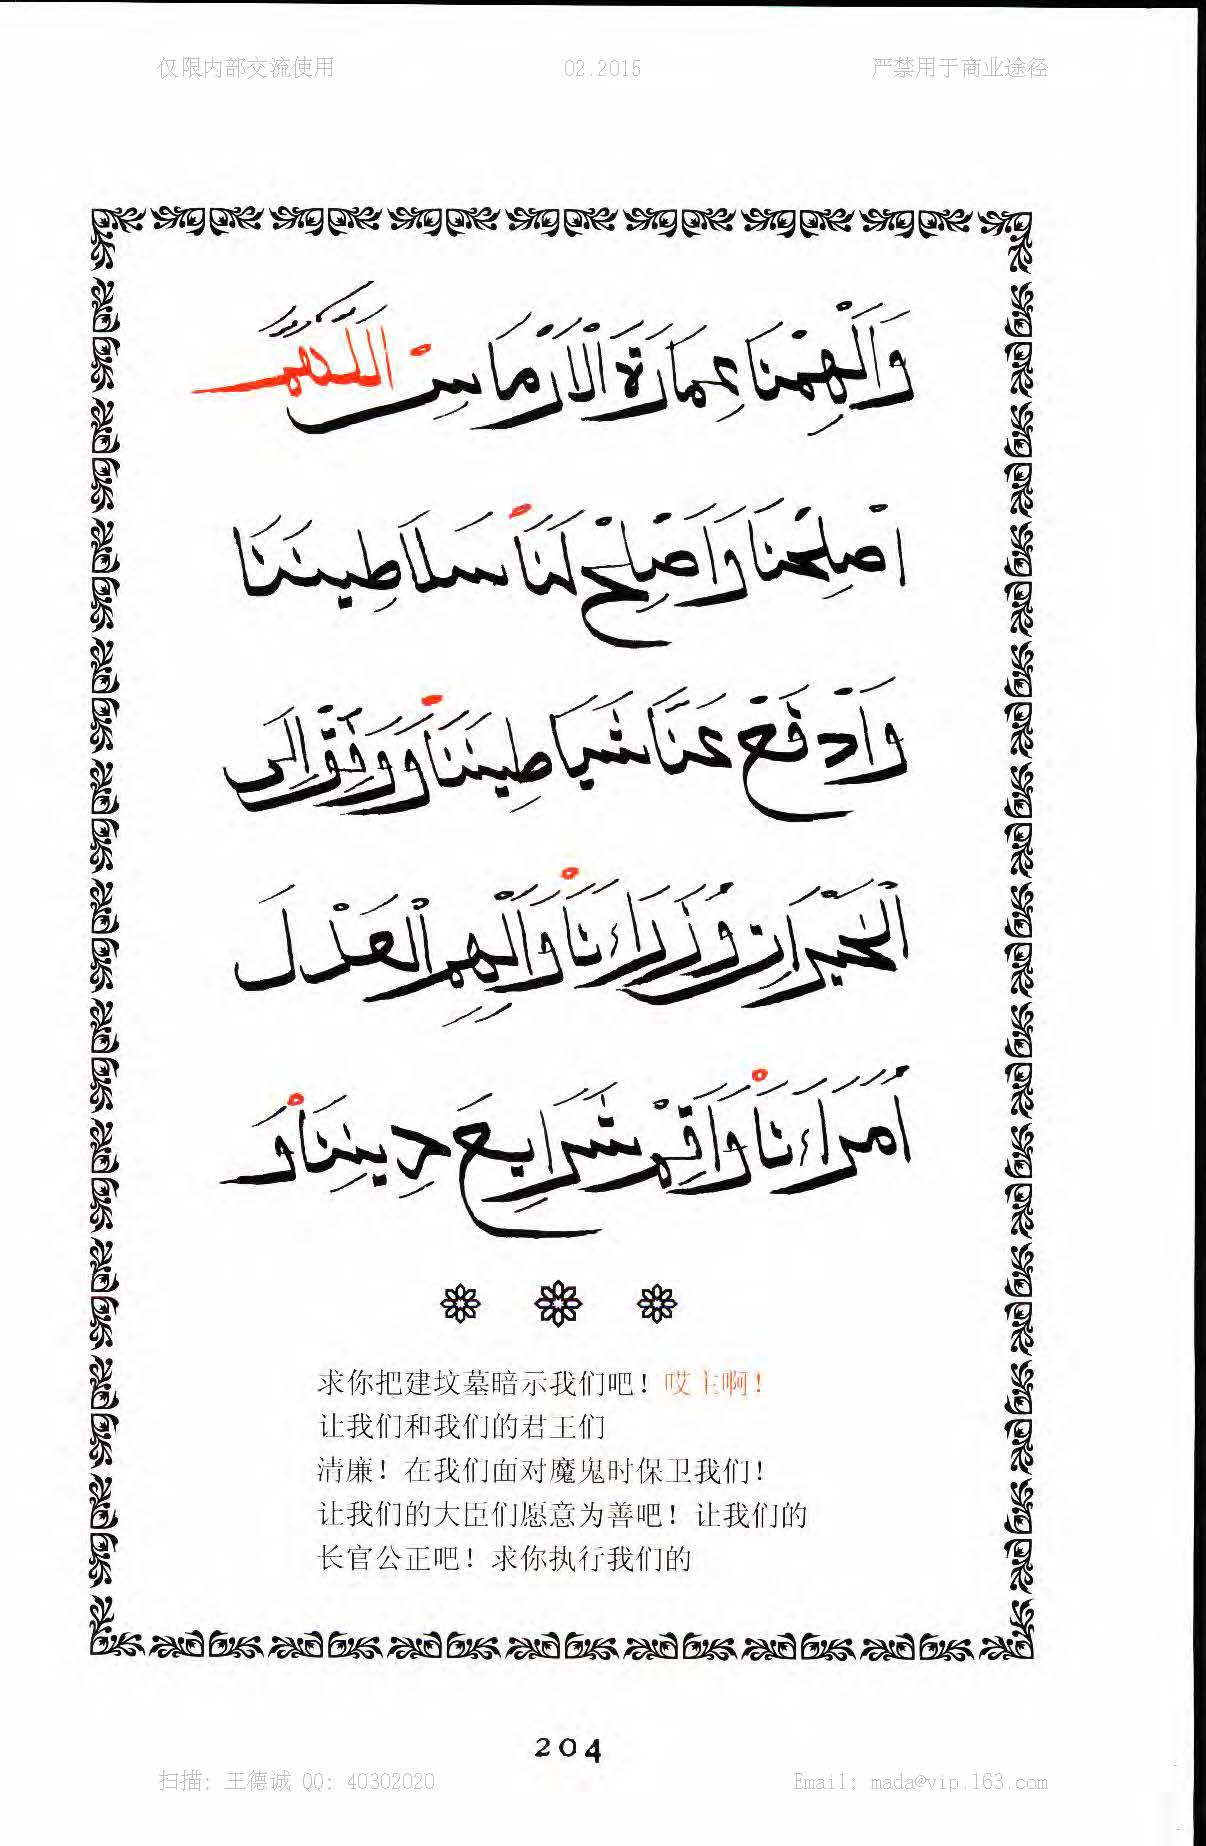 仅限内部交流使用 02.2015 严禁用于商业途径
وَأَلْهِمْنَا عِمَارَةَ الْأَرْمَاسِ اَللَّهُمَّ
اَصْلِحْنَا وَاَصْلِحْ لَنَا سَلَاطِينَنَا
وَادْفَعْ عَنَّا شَيَاطِينَنَا وَوَفِّقْ اِلَى
الْخَيْرَاتِ وُزَرَاءَنَا وَاَلْهِمِ الْعَدْلَ
اُمَرَاءَنَا وَاَقِمْ شَرَايِعَ دِينِنَا وَ
求你把建坟墓暗示我们吧！哎主啊！
让我们和我们的君王们
清廉！在我们面对魔鬼时保卫我们！
让我们的大臣们愿意为善吧！让我们的
长官公正吧！求你执行我们的
204
扫描: 王德诚 QQ: 40302020 Email: mada@vip.163.com